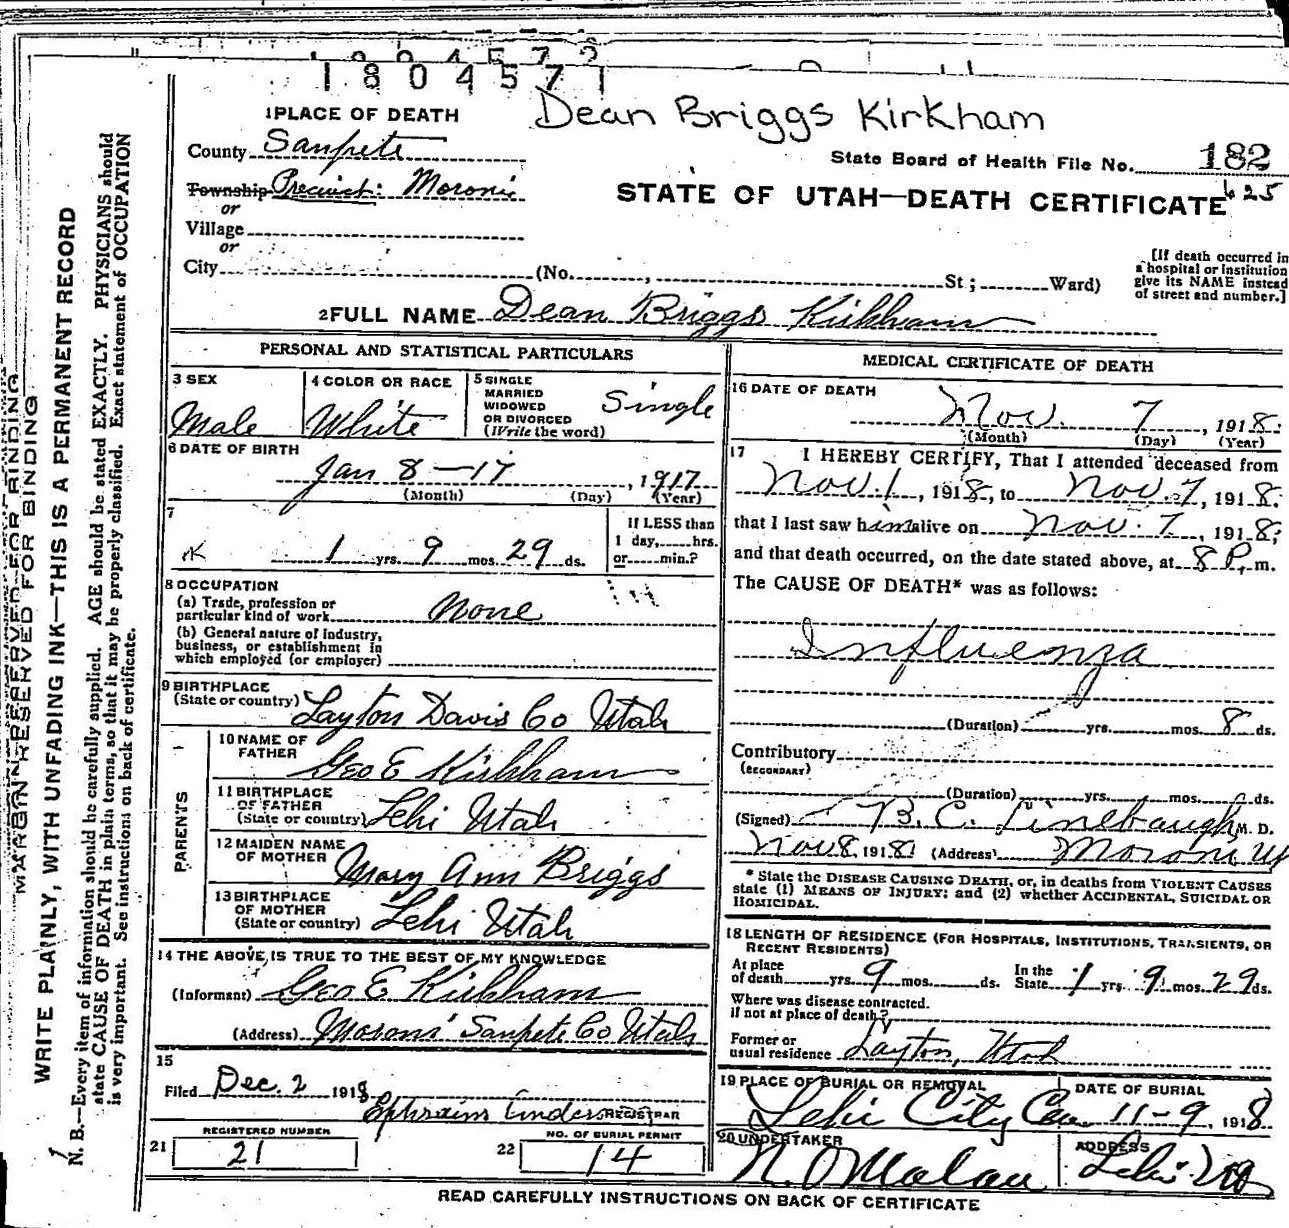 1804572
1804571
Dean Briggs Kirkham
1 PLACE OF DEATH
County Sanpete
State Board of Health File No. 182
625
Township Precinct: Moroni
STATE OF UTAH—DEATH CERTIFICATE
or
Village
or
City (No. , St ; Ward)
[If death occurred in
a hospital or institution
give its NAME instead
of street and number.]
2 FULL NAME Dean Briggs Kirkham
PERSONAL AND STATISTICAL PARTICULARS
3 SEX
Male
4 COLOR OR RACE
White
5 SINGLE
MARRIED
WIDOWED
OR DIVORCED
(Write the word)
Single
6 DATE OF BIRTH
Jan 8 — 17, 1917
(Month) (Day) (Year)
7
1 yrs. 9 mos. 29 ds.
If LESS than
1 day, hrs.
or min.?
8 OCCUPATION
(a) Trade, profession or
particular kind of work None
(b) General nature of industry,
business, or establishment in
which employed (or employer)
9 BIRTHPLACE
(State or country) Layton Davis Co Utah
PARENTS
10 NAME OF
FATHER Geo E Kirkham
11 BIRTHPLACE
OF FATHER
(State or country) Lehi Utah
12 MAIDEN NAME
OF MOTHER Mary Ann Briggs
13 BIRTHPLACE
OF MOTHER
(State or country) Lehi Utah
14 THE ABOVE IS TRUE TO THE BEST OF MY KNOWLEDGE
(Informant) Geo E Kirkham
(Address) Moroni Sanpete Co Utah
15
Filed Dec. 2 1918
Ephraim Anderson REGISTRAR
21 REGISTERED NUMBER
21
22 NO. OF BURIAL PERMIT
14
MEDICAL CERTIFICATE OF DEATH
16 DATE OF DEATH
Nov. 7, 1918
(Month) (Day) (Year)
17 I HEREBY CERTIFY, That I attended deceased from
Nov. 1, 1918, to Nov. 7, 1918
that I last saw him alive on Nov. 7, 1918;
and that death occurred, on the date stated above, at 8 P. m.
The CAUSE OF DEATH* was as follows:
Influenza
(Duration) yrs. mos. 8 ds.
Contributory
(SECONDARY)
(Duration) yrs. mos. ds.
(Signed) B. C. Linebaugh M. D.
Nov 8, 1918 (Address) Moroni Ut
* State the DISEASE CAUSING DEATH, or, in deaths from VIOLENT CAUSES
state (1) MEANS OF INJURY; and (2) whether ACCIDENTAL, SUICIDAL OR
HOMICIDAL.
18 LENGTH OF RESIDENCE (FOR HOSPITALS, INSTITUTIONS, TRANSIENTS, OR
RECENT RESIDENTS)
At place
of death yrs. 9 mos. ds. In the
State 1 yrs. 9 mos. 29 ds.
Where was disease contracted.
if not at place of death?
Former or
usual residence Layton, Utah
19 PLACE OF BURIAL OR REMOVAL
Lehi City Cem.
DATE OF BURIAL
11-9, 1918
20 UNDERTAKER
N. O Malan
ADDRESS
Lehi Ut
READ CAREFULLY INSTRUCTIONS ON BACK OF CERTIFICATE
MARGIN RESERVED FOR BINDING
WRITE PLAINLY, WITH UNFADING INK—THIS IS A PERMANENT RECORD
N. B.—Every item of information should be carefully supplied. AGE should be stated EXACTLY. PHYSICIANS should
state CAUSE OF DEATH in plain terms, so that it may be properly classified. Exact statement of OCCUPATION
is very important. See instructions on back of certificate.